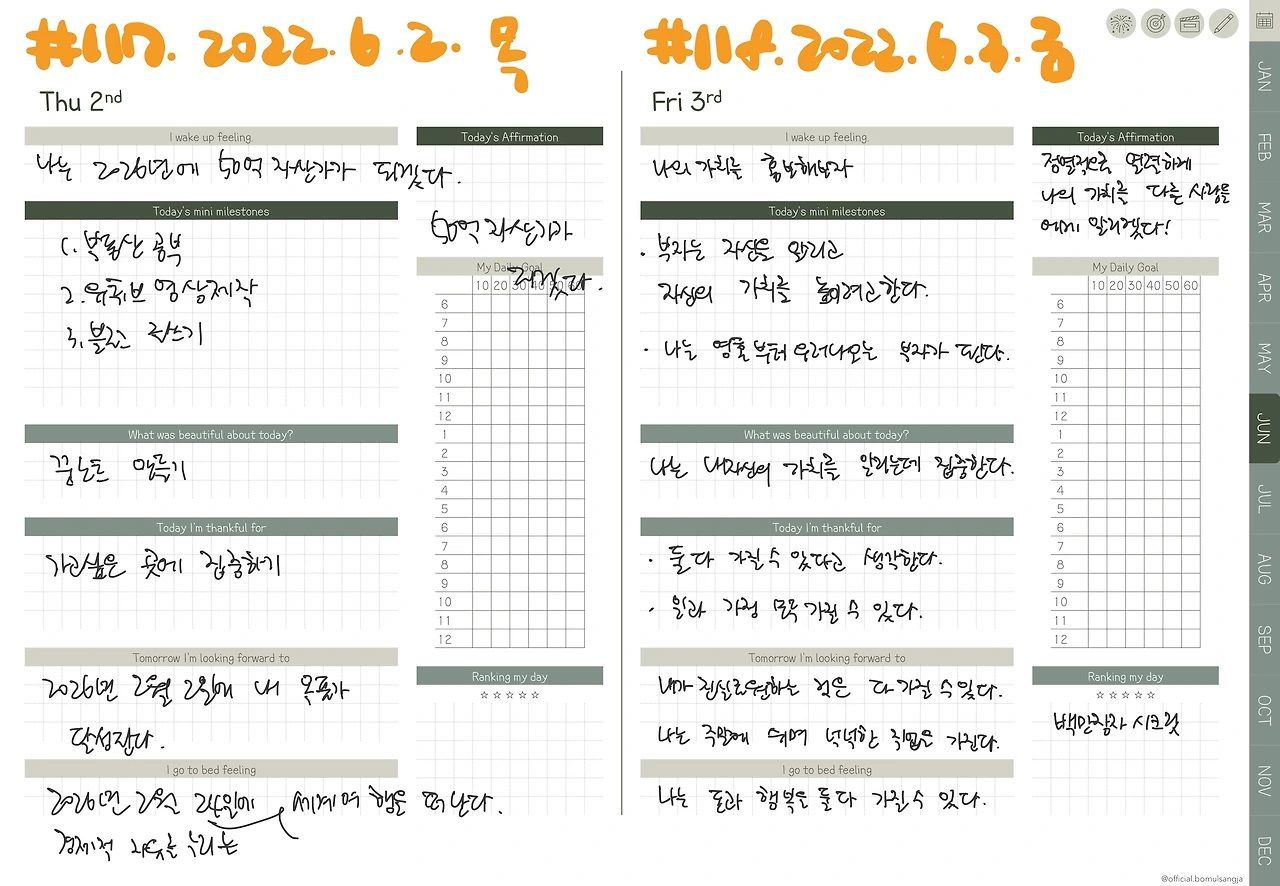 #117. 2022. 6. 2. 목
Thu 2nd
I wake up feeling,
나는 2026년에 50억 자산가가 되겠다.
Today's mini milestones
1. 부동산 공부
2. 유튜브 영상제작
3. 블로그 글쓰기
What was beautiful about today?
꿈노트 만들기
Today I'm thankful for
가고싶은 곳에 집중하기
Tomorrow I'm looking forward to
2026년 2월 2일에 내 목표가
달성된다.
I go to bed feeling
2026년 2월 24일에 세계여행을 떠난다.
경제적 자유를 누리는
Today's Affirmation
50억 자산가가
되겠다.
My Daily Goal
10 20 30 40 50 60
6
7
8
9
10
11
12
1
2
3
4
5
6
7
8
9
10
11
12
Ranking my day
☆☆☆☆☆
#118. 2022. 6. 3. 금
Fri 3rd
I wake up feeling,
나의 가치를 홍보해보자
Today's mini milestones
· 부자는 자신을 알리고
자신의 가치를 높이려고한다.
· 나는 영혼부터 우러나오는 부자가 된다.
What was beautiful about today?
나는 내자신의 가치를 알리는데 집중한다.
Today I'm thankful for
· 둘 다 가질 수 있다고 생각한다.
· 일과 가정 모두 가질 수 있다.
Tomorrow I'm looking forward to
내가 진실로원하는 것은 다 가질 수있다.
나는 주말에 쉬며 넉넉한 직업을 가진다.
I go to bed feeling
나는 돈과 행복을 둘 다 가질 수 있다.
Today's Affirmation
정열적으로 열격하게
나의 가치를 다른 사람들
에게 알리겠다!
My Daily Goal
10 20 30 40 50 60
6
7
8
9
10
11
12
1
2
3
4
5
6
7
8
9
10
11
12
Ranking my day
☆☆☆☆☆
백만장자 시크릿
JAN
FEB
MAR
APR
MAY
JUN
JUL
AUG
SEP
OCT
NOV
DEC
@official.bomulsangja